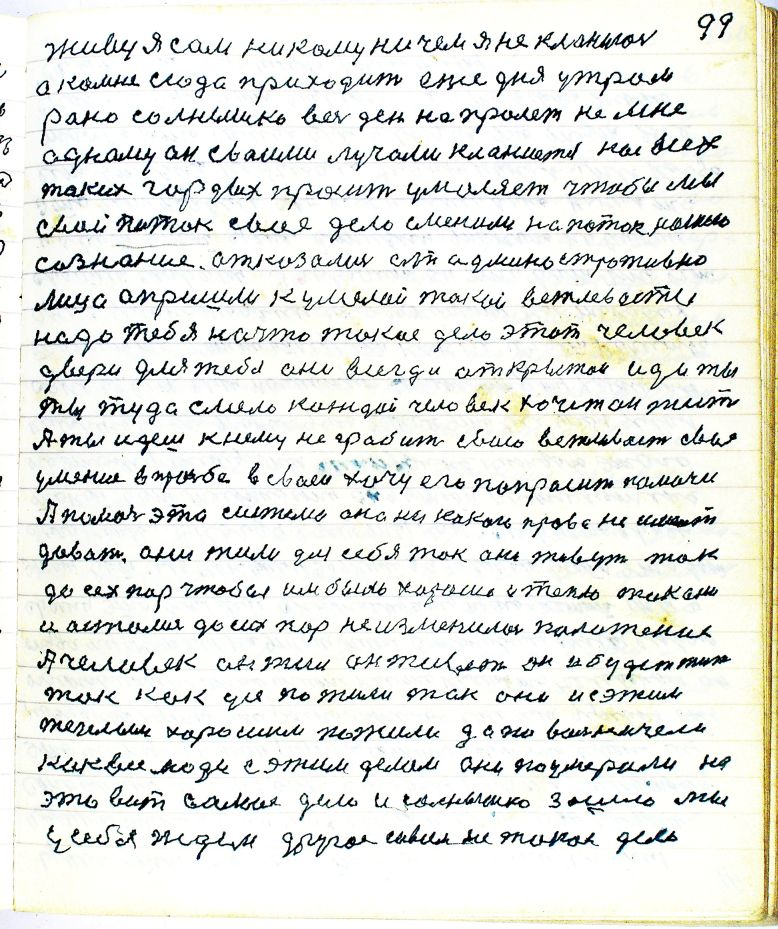 99
живу я сам никому ничем я не кланяюсь
а комне сюда приходит еже дня утром
рано солнышко вес ден напролет не мне
адному он сваими лучами кланяется но всех
таких гордых просит умаляет чтобы мы
свой паток свое дело сменили на поток нашего
сознание. атказалис от административно
лица апришли к умелой такой вежлевасти
надо тебя начто такое дело этот человек
двери для тебя они всегда аткрытаи иди ты
ты туда смело каждай человек хочет он жит
А ты идеш к нему не грабит сваю вежливаст свае
умение впросбе всваем хочу его попрасит памочи
А помоч эта система она ни какого права не имеет
дават. они жили для себя так они живут так
до сех пор чтобы им было харашо и тепло так они
и асталис до сих пор неизменилос палажение
А человек он жил он живет он и будет жит
так как уже пожили так они и с этим
теплым харошим пожили да по
как все люди с этим делом они поумерали на
это вот самое дело и солнышко зошло мы
у себя ждем другое савсем не такое дело